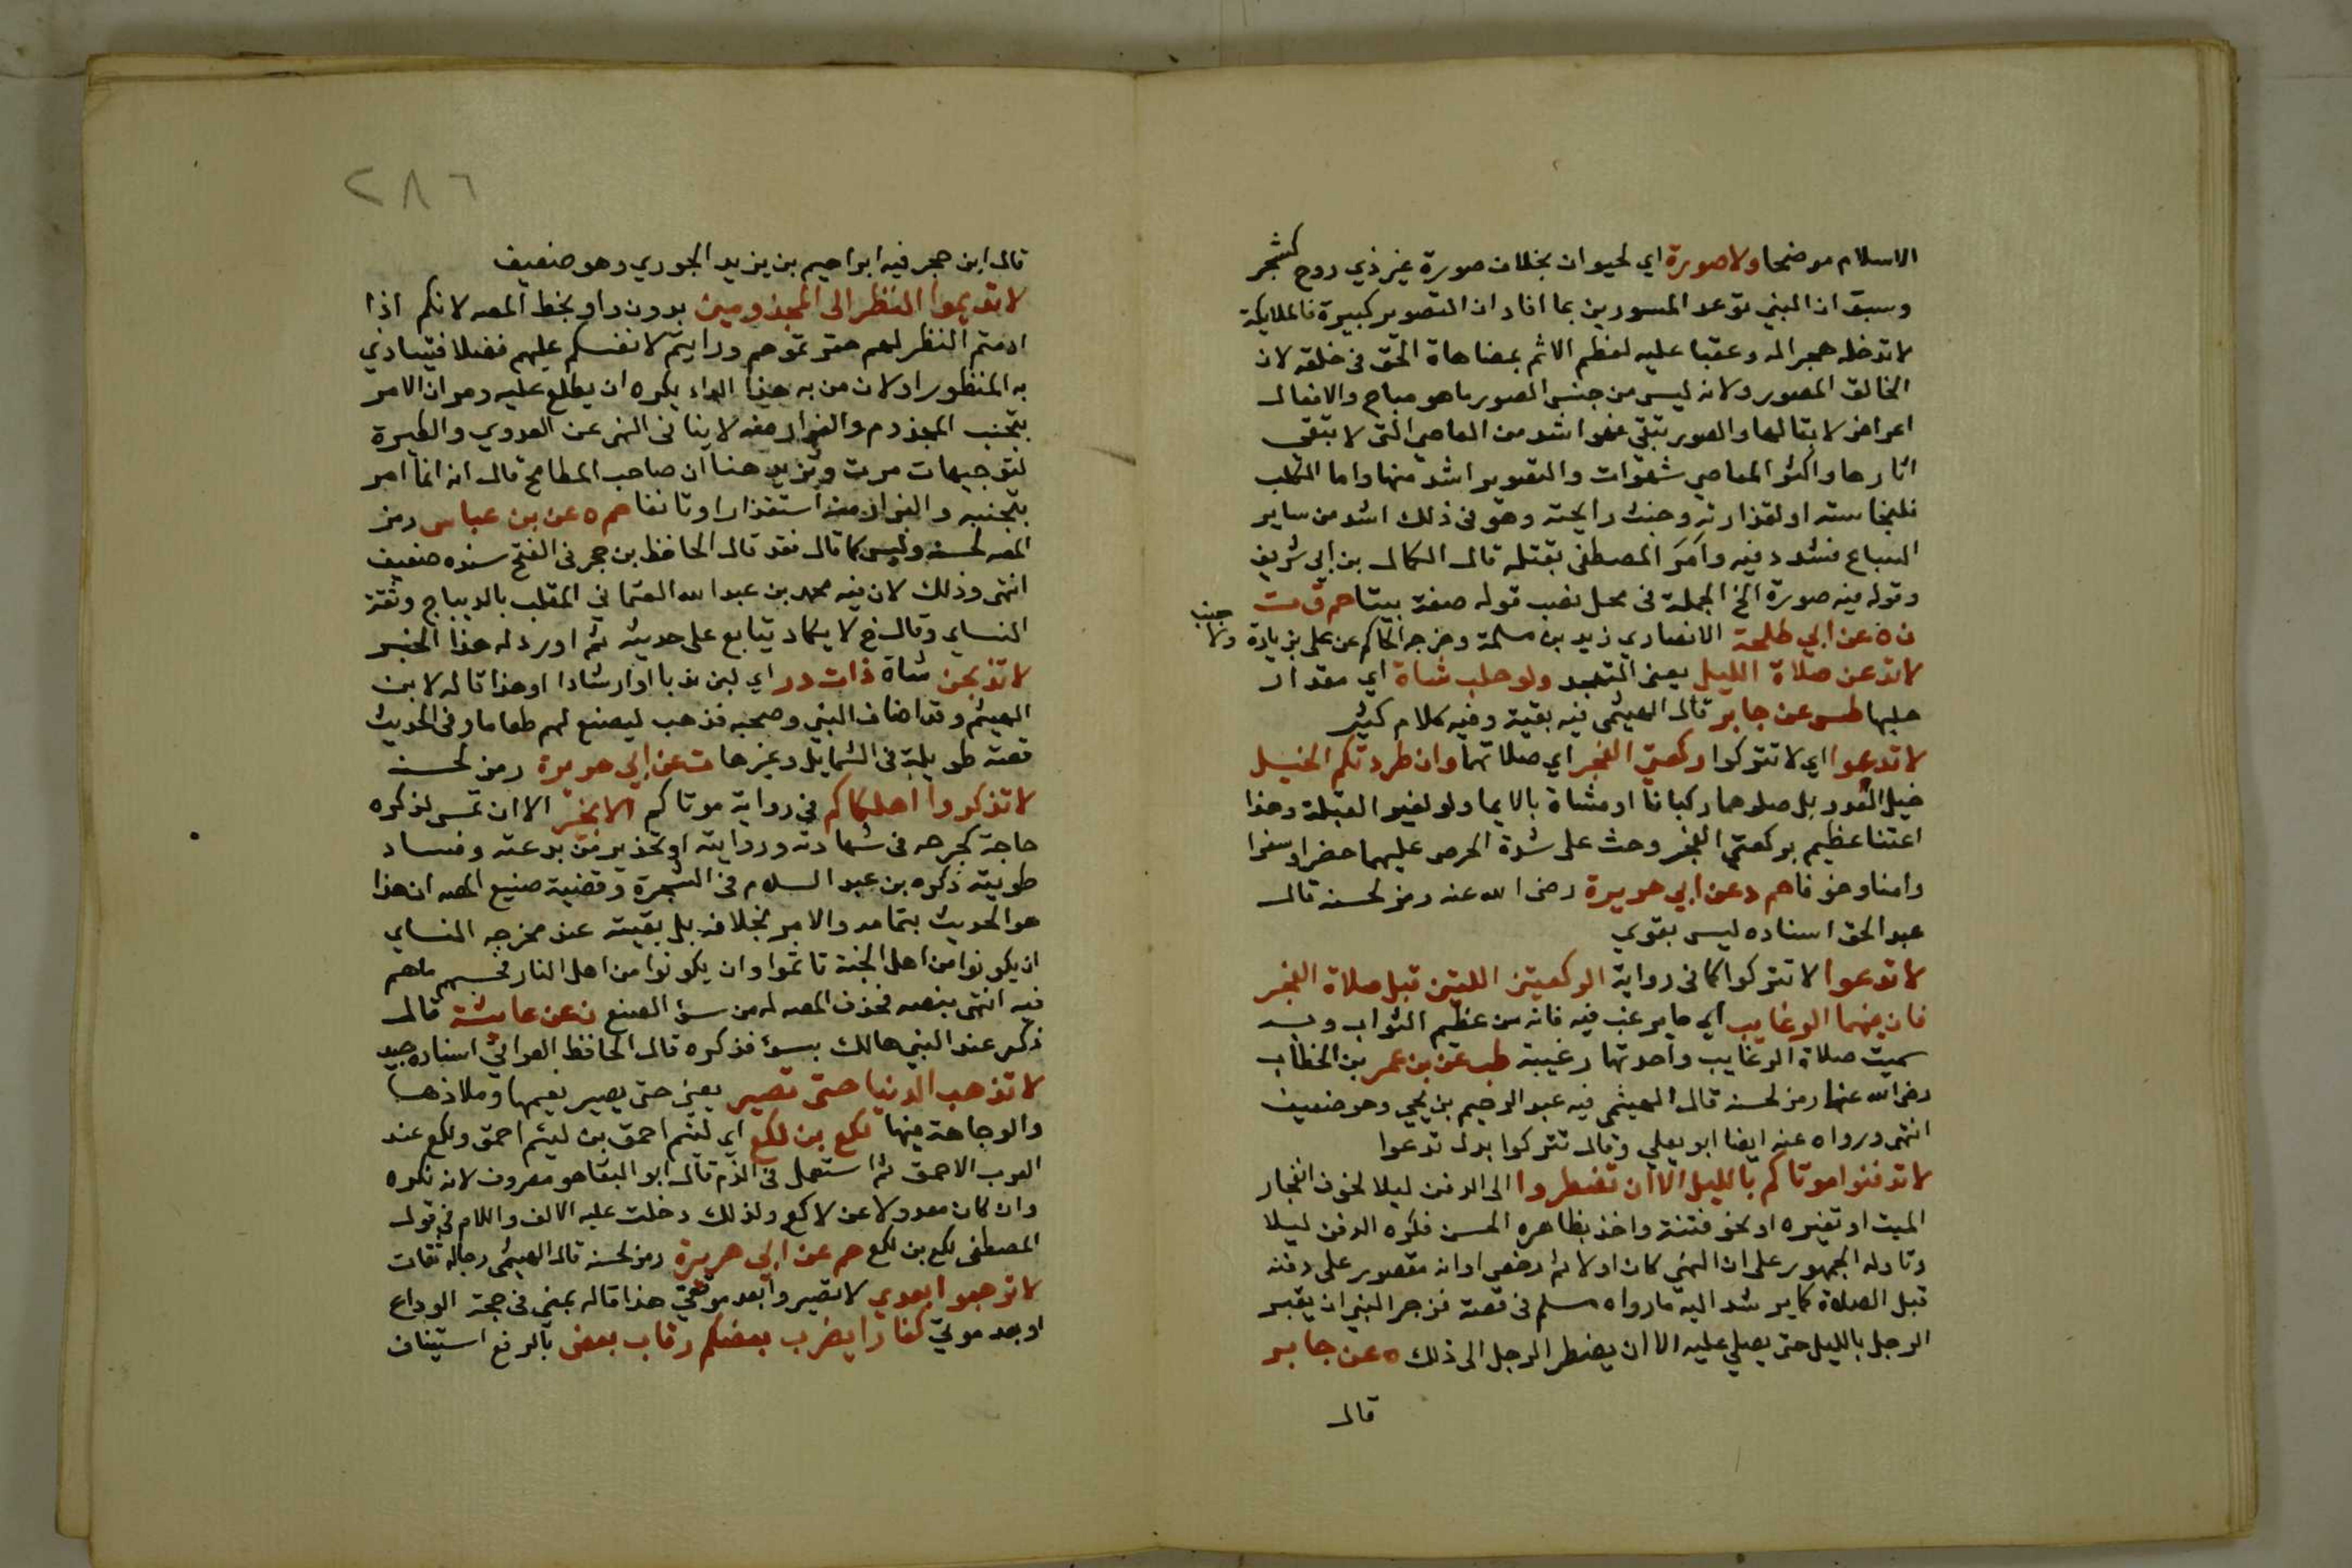 الاسلام موضحا ولا صورة اي لحيوان بخلاف صورة غير ذي روح كشجر
وسبق ان النبي توعد المصورين بما افاد ان التصوير كبيرة فالملايكة
لا تدخله هجرا له وعقبا عليه لعظم الاثم بمضاهاة الحق في خلقه لان
الخالق المصور ولانه ليس من جنس الصور ما هو مباح والافعال
اعراض لا بقا لها والصور تبقي فهو اشد من المعاصي التي لا تبقى
اثارها واكثر المعاصي شهوات والتصوير اشد منها واما الكلب
فلنجاسته او لقذارته وخبث رايحته وهو في ذلك اشد من ساير
السباع فشدد فيه وامر المصطفى بقتله قال الكمال بن ابي شريف
وقوله فيه صورة الخ الجملة في محل نصب قوله صفة بيتا حم ق ت
ن ه عن ابي طلحة الانصاري زيد بن سلمة وخرجه الحاكم عن علي بزيادة ولا جنب
لا تدعن صلاة الليل يعني التهجد ولو حلب شاة اي مقدار
حلبها طس عن جابر قال الهيثمي فيه بقية وفيه كلام كثير
لا تدعوا اي لا تتركوا ركعتي الفجر اي صلاتهما وان طردتكم الخيل
خيل العدو بل صلوهما ركبانا او مشاة بالايما ولو لغير القبلة وهذا
اعتنا عظيم بركعتي الفجر وحث على شدة الحرص عليهما حضرا وسفرا
وامنا وخوفا حم د عن ابي هريرة رضى الله عنه رمز لحسنه قال
عبد الحق اسناده ليس بقوي
لا تدعوا لا تتركوا كما في رواية الركعتين اللتين قبل صلاة الفجر
فان فيهما الرغايب اي ما يرغب فيه فانه من عظيم الثواب وبه
سميت صلاة الرغايب واحدتها رغيبة طب عن بن عمر بن الخطاب
رضى الله عنهما رمز لحسنه قال الهيثمي فيه عبد الرحيم بن يحيي وهو ضعيف
انتهى ورواه عنه ايضا ابو يعلي وقال تتركوا بدل تدعوا
لا تدفنوا موتاكم بالليل الا ان تضطروا الى الدفن ليلا لخوف انفجار
الميت او تغيره او نحو فتنة واخذ بظاهره الحسن فكره الدفن ليلا
وتاوله الجمهور على ان النهي كان اولا ثم رخص او انه مقصور على دفنه
قبل الصلاة كما يرشد اليه ما رواه مسلم في قصة فزجر النبي ان يقبر
الرجل بالليل حتى يصلي عليه الا ان يضطر الرجل الى ذلك ه عن جابر
قال
٢٨٦
قال ابن حجر فيه ابراهيم بن يزيد الجوري وهو ضعيف
لا تديموا النظر الى المجذومين بدون واو بخط المصه لانكم اذا
ادمتم النظر لهم حقرتموهم ورايتم لانفسكم عليهم فضلا فيتاذي
به المنظور او لان من به هذا الداء يكره ان يطلع عليه ومر ان الامر
بتجنب المجذوم والفرار منه لا ينافي النهى عن العدوي والطيرة
لتوجيهات مرت ونزيد هنا ان صاحب المطامح قال انه انما امر
بتجنبه والفرار منه استقذارا وتانفا حم ه عن بن عباس رمز
المصه لحسنه وليس كما قال فقد قال الحافظ بن حجر في الفتح سنده ضعيف
انتهى وذلك لان فيه محمد بن عبد الله العثماني الملقب بالديباج وثقه
النساي وقال خ لا يكاد يتابع على حديثه ثم اورد له هذا الخبر
لا تذبحن شاة ذات در اي لبن ندبا او ارشادا او هذا قاله لابن
الهيثم وقد اضاف النبي وصحبه فذهب ليصنع لهم طعاما وفي الحديث
قصة طويلة في الشمايل وغيرها ت عن ابي هريرة رمز لحسنه
لا تذكروا اهلكاكم في رواية موتاكم الا بخير الا ان تمس لذكره
حاجة كجرحه في شهادته وروايته او تحذير من بدعته وفساد
طويته ذكره بن عبد السلام في الشجرة وقضية صنيع المصه ان هذا
هو الحديث بتمامه والامر بخلافه بل بقيته عند مخرجه النساي
ان يكونوا من اهل الجنة تاثموا وان يكونوا من اهل النار فحسبهم ما هم
فيه انتهى بنصه فحذف المصه له من سؤ الصنيع ن عن عايشة قال
ذكر عند النبي هالك بسؤ فذكره قال الحافظ العراقي اسناده جيد
لا تذهب الدنيا حتى تصير يعني حتى يصير نعيمها وملاذها
والوجاهة فيها لكع بن لكع اي لئيم احمق بن لئيم احمق ولكع عند
العرب الاحمق ثم استعمل في الذم قال ابو البقا هو مصروف لانه نكره
وان كان معدولا عن لاكع ولذلك دخلت عليه الالف واللام في قول
المصطفى لكع بن لكع حم عن ابي هريرة رمز لحسنه قال الهيثمي رجاله ثقات
لا ترجعوا بعدي لا تصيروا بعد موقفي هذا قاله بمني في حجة الوداع
او بعد موتي كفارا يضرب بعضكم رقاب بعض بالرفع استيناف